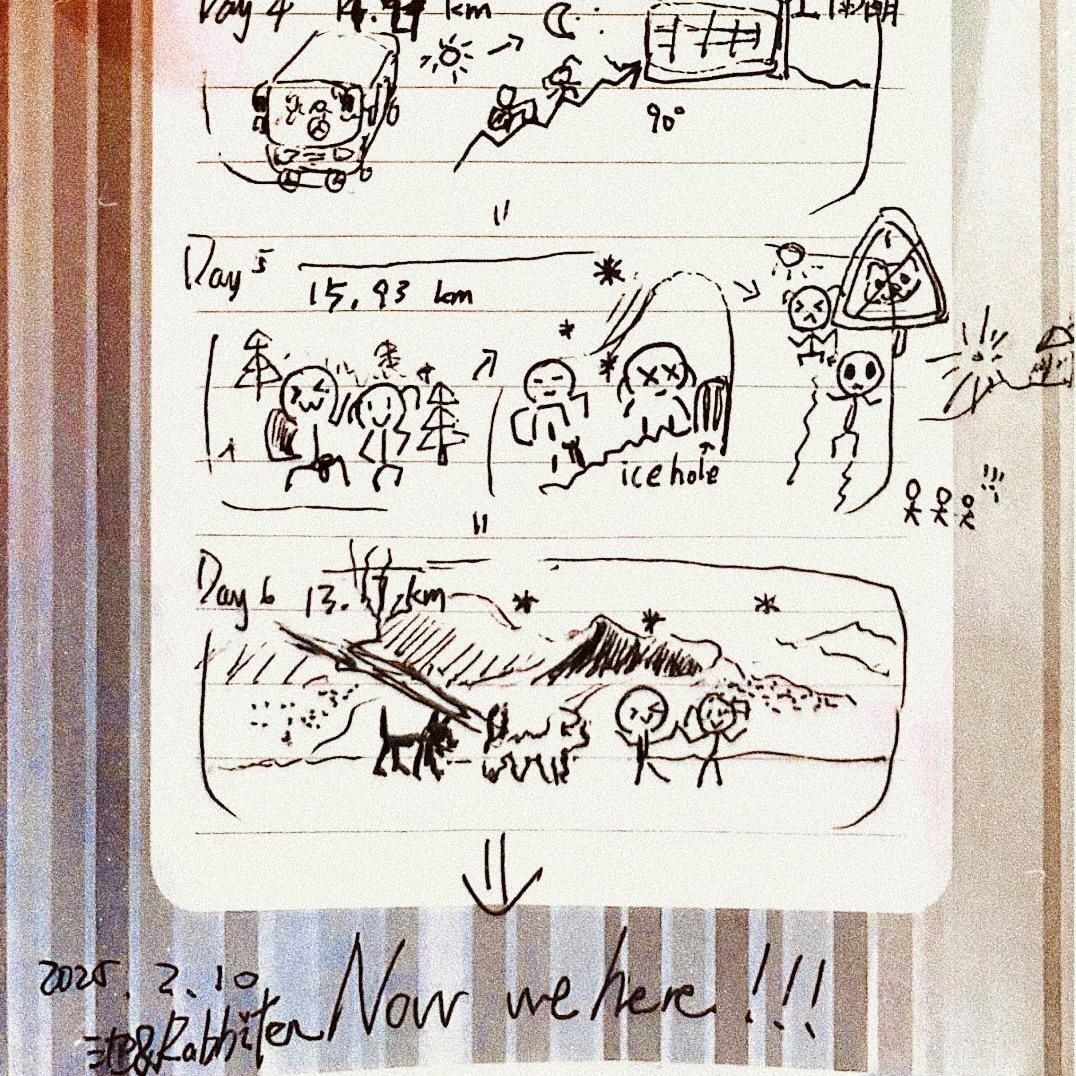 Day 4
km
90°
Day 5
15.93 km
ice hole
!!!
Day 6 13. km
2025. 2.10
&Rabbiten
Now we here!!!